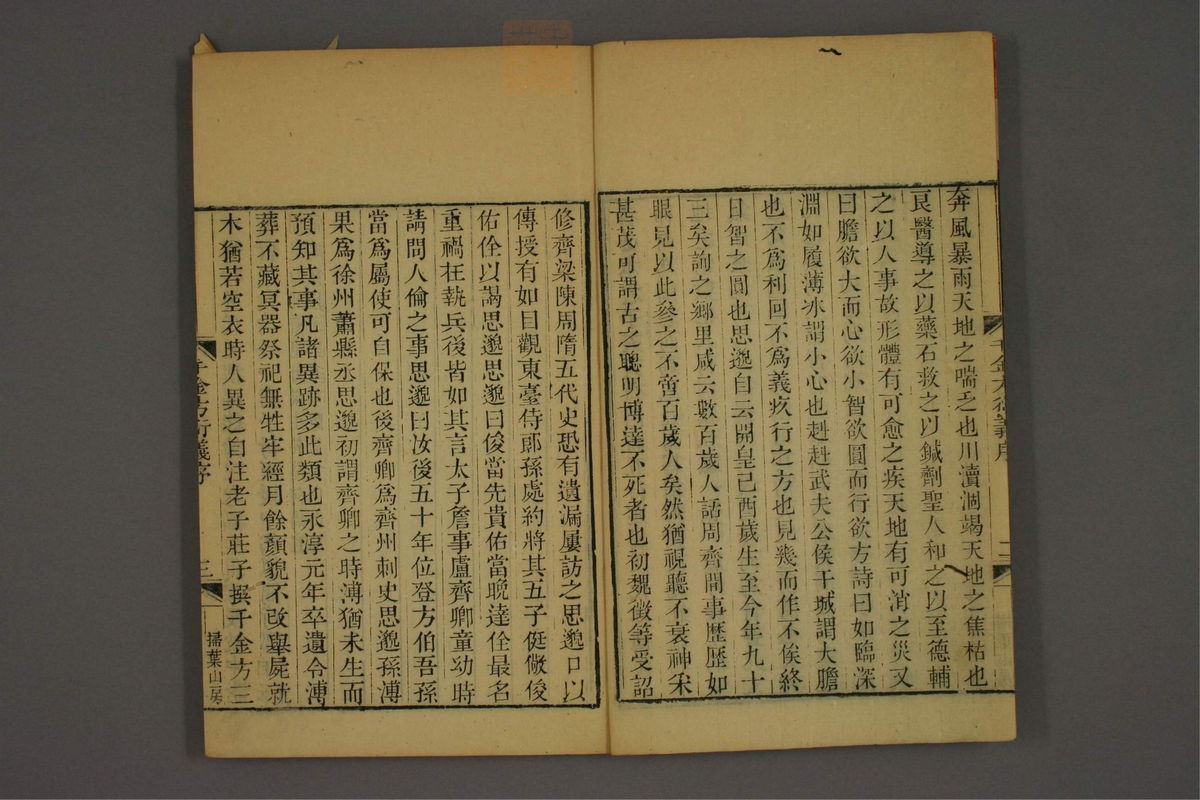 奔風暴雨天地之喘乏也川瀆涸竭天地之焦枯也
良醫導之以藥石救之以鍼劑聖人和之以至德輔
之以人事故形體有可愈之疾天地有可消之災又
曰膽欲大而心欲小智欲圓而行欲方詩曰如臨深
淵如履薄冰謂小心也赳赳武夫公侯干城謂大膽
也不爲利回不爲義疚行之方也見幾而作不俟終
日智之圓也思邈自云開皇己酉歲生至今年九十
三矣詢之鄉里咸云數百歲人話周齊間事歷歷如
眼見以此參之不啻百歲人矣然猶視聽不衰神采
甚茂可謂古之聰明博達不死者也初魏徵等受詔
千金方衍義序
二
修齊梁陳周隋五代史恐有遺漏屢訪之思邈口以
傳授有如目觀東臺侍郎孫處約將其五子侹儆俊
佑佺以謁思邈思邈曰俊當先貴佑當晚達佺最名
重禍在執兵後皆如其言太子詹事盧齊卿童幼時
請問人倫之事思邈曰汝後五十年位登方伯吾孫
當爲屬使可自保也後齊卿爲齊州刺史思邈孫溥
果爲徐州蕭縣丞思邈初謂齊卿之時溥猶未生而
預知其事凡諸異跡多此類也永淳元年卒遺令溥
葬不藏冥器祭祀無牲牢經月餘顏貌不改舉屍就
木猶若空衣時人異之自注老子莊子撰千金方三
千金方衍義序
三
掃葉山房